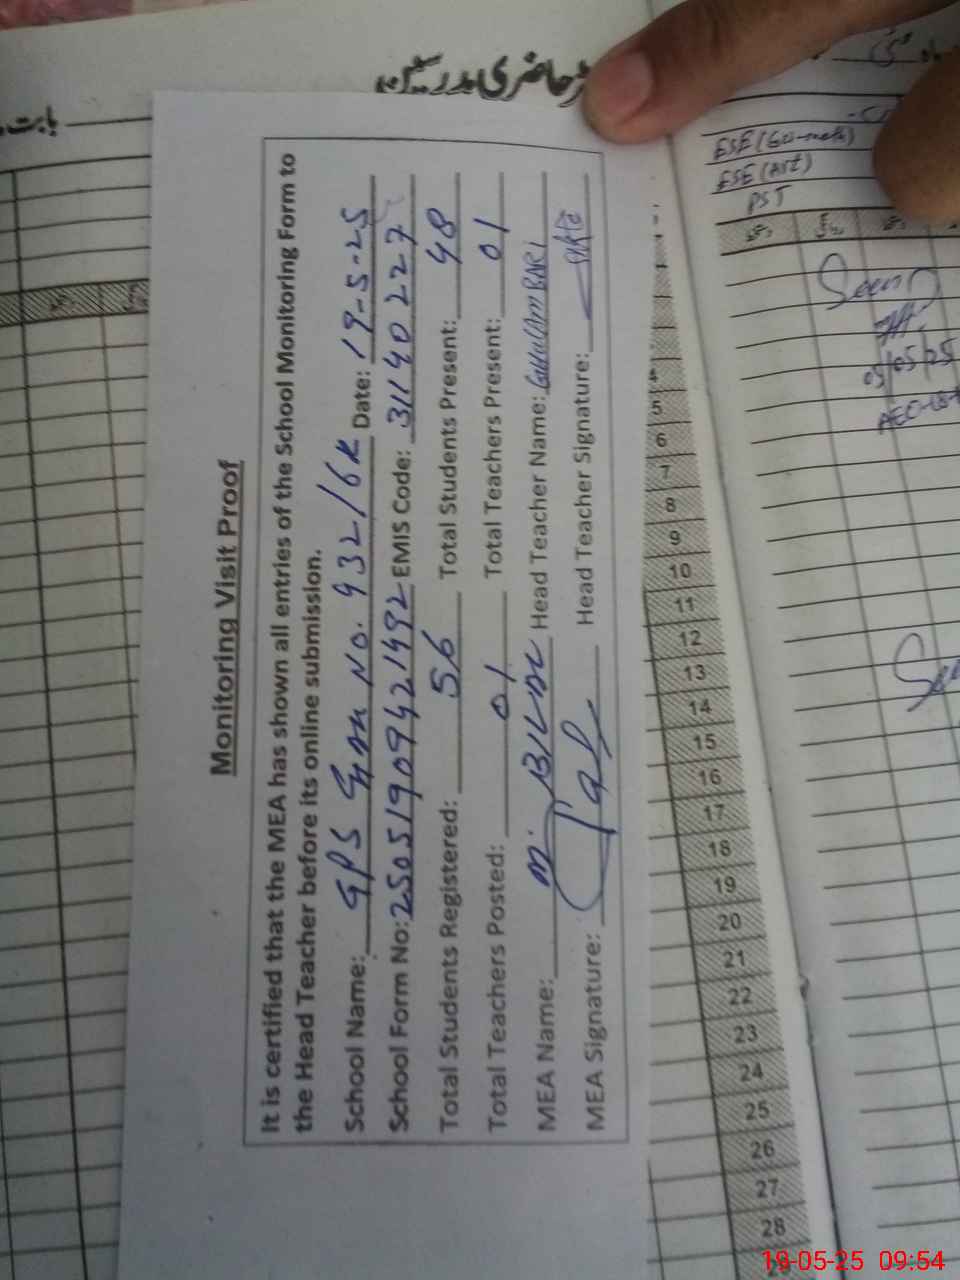 رحاضری مدرسین
بابت ماہ
Monitoring Visit Proof
It is certified that the MEA has shown all entries of the School Monitoring Form to
the Head Teacher before its online submission.
School Name: GPS Gran No. 932/6R Date: 19-5-25
School Form No: 25051909421492 EMIS Code: 31140227
Total Students Registered: 56 Total Students Present: 48
Total Teachers Posted: 01 Total Teachers Present: 01
MEA Name: M. BILAL Head Teacher Name: GHULAM BARI
MEA Signature: Head Teacher Signature:
ESE (Art)
PST
Seen
05/05/25
4
5
6
7
8
9
10
11
12
13
14
15
16
17
18
19
20
21
22
23
24
25
26
27
28
19-05-25 09:54